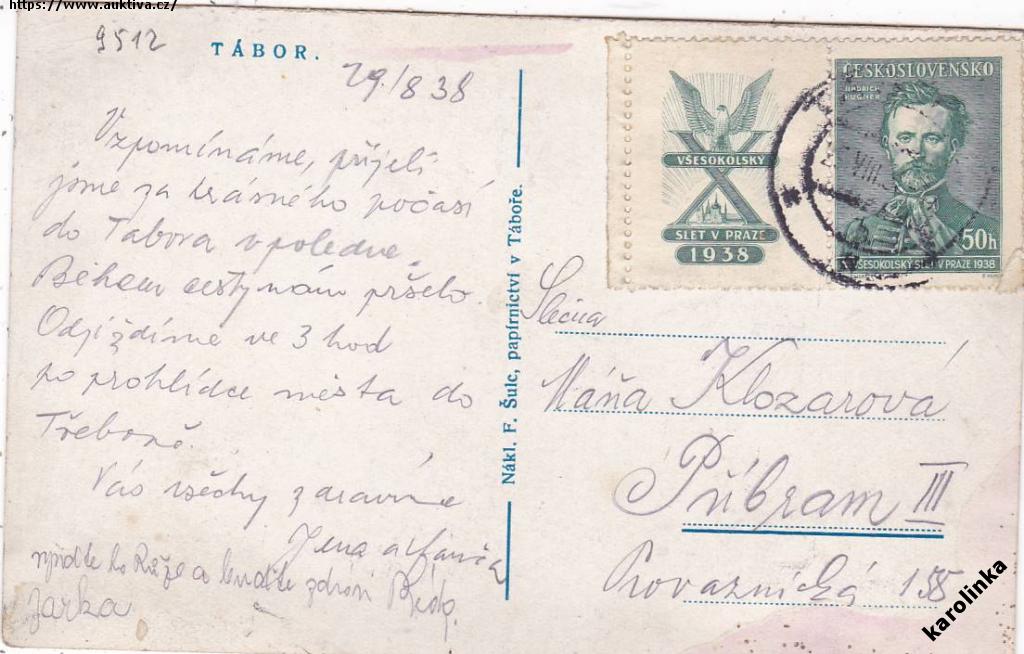 https://www.auktiva.cz/
9512
TÁBOR.
29./8 38
Vzpomínáme, přijeli
jsme za krásného počasí
do Tabora v poledne.
Během cesty nám pršelo.
Odjíždíme ve 3 hod
po prohlídce města do
Třeboně.
Vás všechny zdravíme
Jena a
a buďte zdrávi
Jarka
Nákl. F. Šulc, papírnictví v Táboře.
VŠESOKOLSKÝ
X
SLET V PRAZE
1938
ČESKOSLOVENSKO
JINDŘICH
FÜGNER
50h
VŠESOKOLSKÝ SLET V PRAZE 1938
VIII.
Slečna
Máňa Klozarová
Příbram III
Provaznická 155
karolinka